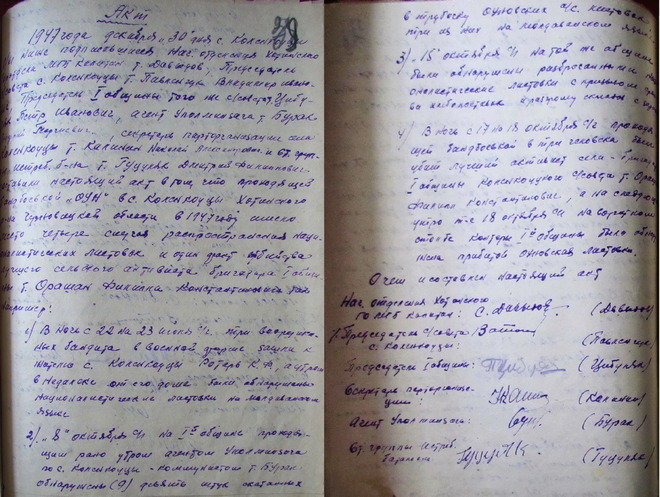 Акт
1947 года декабря „30" дня с. Колинкоуцы
Мы ниже подписавшиеся Нач. отделения Хотинского
МГБ капитан т. Давыдов, Председатель
с. Колинкоуцы т. Павленчук Владимир
Председатель I общины того же с/совета т. Цибу-
Петр Иванович, агент Уполминзага т. Бурак
Георгиевич, секретарь парторганизации села
Колинкоуцы т. Калинин Николай и ст. груп-
истреб. б-на т. Гуцуляк Дмитрий Филиппович
составили настоящий акт в том, что проходящей
бандгруппой „ОУН" в с. Колинкоуцы Хотинского
Черновицкой области в 1947 году имело
место четыре случая распространения наци-
оналистических листовок и один факт убийства
лучшего сельского активиста бригадира I общины
т. Орашан Филиппа Константиновича так
например:
1) В ночь с 22 на 23 июня с/г. три вооружен-
ных бандита в военной форме зашли к
жителю с. Колинкоуцы Ротарь К.Ф., а утром
в недалеке от его дома были обнаружены
националистические листовки на молдавском
языке
2) „8" октября с/г. на I-ой общине проходя-
щим рано утром агентом Уполминзага
по с. Колинкоуцы - коммунистом т. Бурак
обнаружены (9) девять штук скатанных
в трубочку оуновских а/с. листовок
три из них на молдавском языке.
3) „15" октября с/г на той же общине
были обнаружены разбросанными наци-
оналистические листовки с
4) В ночь с 17 на 18 октября с/г проходя-
щей бандгруппой в три человека был
убит лучший активист села - бригадир
I общины Колинкоуцкого с/совета т. Ораш
Филипп Константинович, а на следующее
утро т.е. 18 октября с/г на
столбе конторы I-ой общины была обнару-
жена прибитой оуновская листовка.
О чем и составлен настоящий акт
Нач. отделения Хотинского
РО МГБ капитан: С. Давыдов (Давыдов)
Председатель с/совета
с. Колинкоуцы: (Павленчук)
Председатель I общины: (Цибуляк)
Секретарь парторганиза-
ции: (Калинин)
Агент Уполминзага: (Бурак)
Ст. группы истреб.
батальона: (Гуцуляк)